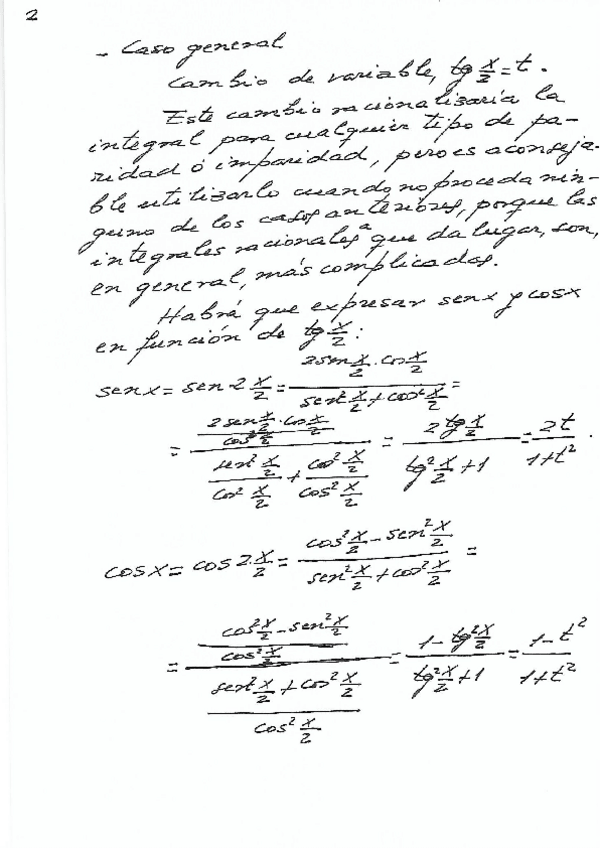 2
- Caso general
Cambio de variable, tg x/2 = t.
Este cambio racionalizaría la
integral para cualquier tipo de pa-
ridad ó imparidad, pero es aconseja-
ble utilizarlo cuando no proceda nin-
guno de los casos anteriores, porque las
integrales racionales a que da lugar, son,
en general, más complicados.
Habrá que expresar senx y cosx
en función de tg x/2:
senx = sen 2 x/2 = (2 sen x/2 · cos x/2)/(sen² x/2 + cos² x/2) =
= ((2 sen x/2 · cos x/2)/(cos² x/2))/((sen² x/2)/(cos² x/2) + (cos² x/2)/(cos² x/2)) = (2 tg x/2)/(tg² x/2 + 1) = 2t/(1+t²).
cosx = cos 2·x/2 = (cos² x/2 - sen² x/2)/(sen² x/2 + cos² x/2) =
= ((cos² x/2 - sen² x/2)/(cos² x/2))/((sen² x/2 + cos² x/2)/(cos² x/2)) = (1 - tg² x/2)/(tg² x/2 + 1) = (1-t²)/(1+t²)